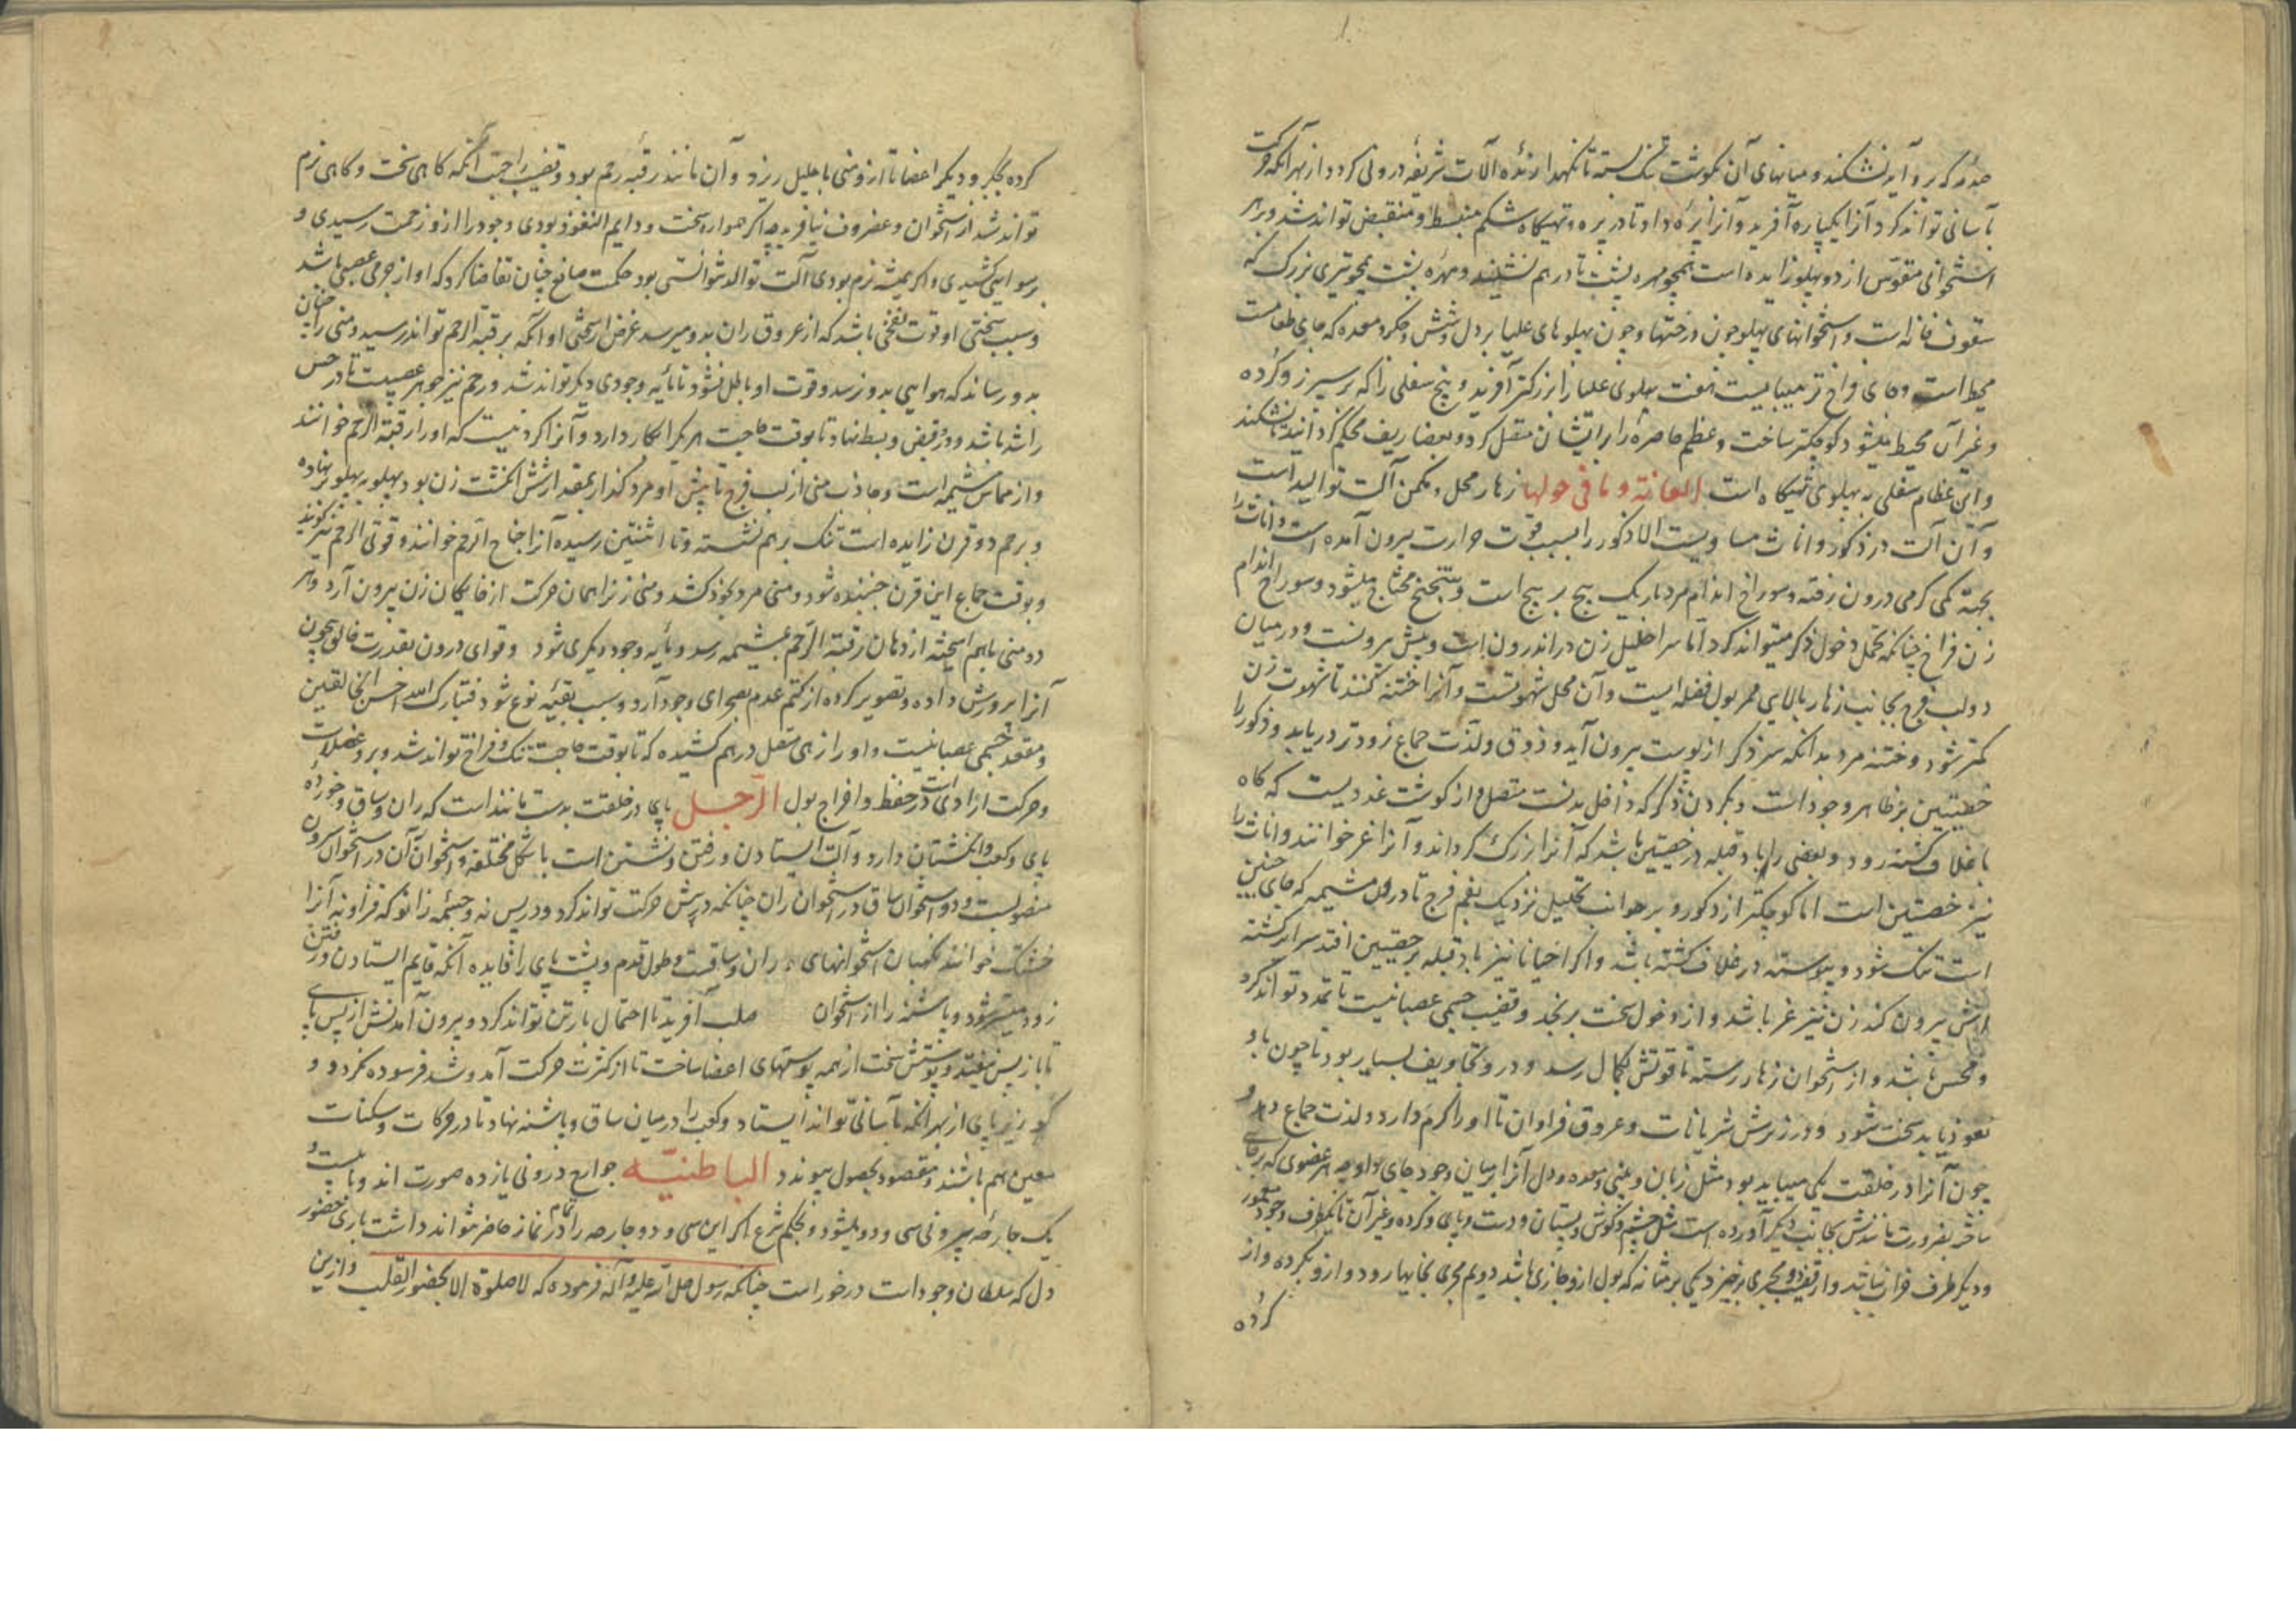 صدمه که برو آید نشکند و میانهای آن بکوشت تنک بسته تا نکهدارنده آلات شریفهٔ درونی کردد از بهر آنکه حرکت
بآسانی تواند کرد آنرا یکپاره آفرید و آنرا نیزه داد تا در پره و تهیکاه شکم منبسط و منقبض تواند شد و بر هر
استخوانی مقوس از دو پهلو زایده است همچو مهره پشت تا در هم نشیند و مهره پشت همچو تیری بزرک که
سقوف خانه است و استخوانهای پهلو چون درختها و چون پهلوهای علیا بر دل و شش و جکر و معده که جای طعامست
محیط است و جای فراخ تر میبایست هفت پهلوی علیا را بزرکتر آفرید و پنج سفلی را که بر سپرز و کرده
و غیر آن محیط میشود کوچکتر ساخت و عظم خاصره را برایشان متصل کرد و بغضاریف محکم کردانید تا نشکند
و این عظام سفلی بر پهلوی تهیکاه است العانة و ما فی حولها زهار محل و مکمن آلت توالید است
و آن آلت در ذکور و اناث مساویست الا ذکور را بسبب قوت حرارت بیرون آمده است و اناث را
بجهة کمی کرمی درون رفته و سوراخ اندام مرد باریک پیچ بر پیچ است و بتنحنح محتاج میشود و سوراخ اندام
زن فراخ چنانکه تحمل دخول ذکر میتواند کرد اما سر احلیل زن در اندرون است و بیش بیرونست و در میان
دو لب فرج بجانب زهار بالای ممر بول فضله ایست و آن محل شهوتست و آنرا ختنه کنند تا شهوت زن
کمتر شود و ختنه مرد بدانکه سر ذکر از پوست بیرون آید و ذوق و لذت جماع زودتر دریابد و ذکور را
خصیتین بر ظاهر وجود است و بکردن ذکر که داخل بدنست متصل و از کوشت غددیست که کاه
با غلاف کشته رود و بعضی را باد قبله در خصیتین باشد که آنرا بزرک کرداند و آنرا غر خوانند و اناث را
نیز خصیتین است اما کوچکتر از ذکور و بر جوانب تحلیل نزدیک بفم فرج تا در دل مشیمه که جای جنین
است تنک شود و پیوسته در غلاف کشته باشد و اکر احیانا نیز باد قبله بر خصیتین افتد سر اندر کشته
اش بیرون کند زن نیز غر باشد و از دخول سخت برنجد و قضیب جسمی عصبانیست تا تمدد تواند کرد
و محس باشد و از استخوان زهار رسته تا قوتش بکمال رسد و درو تجاویف بسیار بود تا چون باد
نعوذ یابد سخت شود و در زیرش شریانات و عروق فراوان تا او را کرم دارد و لذت جماع دهد و
چون آنرا در خلقت یکی میباید بود مثل زبان و بینی و معده و دل آنرا بر میان وجود جای داد چه هر عضوی که بر جای
باشد بضرورت مانندش بجانب دیکر آورده است مثل چشم و کوش و پستان و دست و پای و کرده و غیر آن تا یکطرف وجود معمور
و دیکر طرف خراب نباشد و از قضیب دو مجری برخیزد یکی بر مثانه که بول ازو جاری باشد دویم مجری بخایها رود و ازو بکرده و از
کرده
کرده بجکر و دیکر اعضا تا ازو منی باحلیل ریزد و آن مانند رقبهٔ رحم بود و قضیب را جهة آنکه کاهی سخت و کاهی نرم
تواند شد از استخوان و غضروف نیافرید چه اکر همواره سخت و دایم النعوذ بودی وجود را ازو زحمت رسیدی و
برسوایی کشیدی و اکر همیشه نرم بودی آلت توالد نتوانستی بود حکمت صانع چنان تقاضا کرد که او از جرمی عصبی باشد
و سبب سختی او قوت نفخی باشد که از عروق ران بدو میرسد غرض از سختی او آنکه بر رقبة الرحم تواند رسید و منی را چنان
بدو رساند که هوایی بدو نرسد و قوت او باطل نشود تا مایهٔ وجودی دیکر تواند شد و رحم نیز جوهر عصبیست تا در حس
راشد باشد و درو قبض و بسط نهاد تا بوقت حاجت هر یک را بکار دارد و آنرا کردنیست که او را رقبة الرحم خوانند
و از مماس مشیمه است و جاذب منی از لب فرج تا پیش او مرد کذار بمقدار شش انکشت زن بود پهلو به پهلو نهاده
و بر رحم دو قرن زایده است تنک بر هم نشسته و تا انثیین رسیده آنرا جناح الرحم خوانند و قرنی الرحم نیز کویند
و بوقت جماع این قرن جنبنده شود و منی مرد بخود کشد و منی زن را همان حرکت از خایکان زن بیرون آرد و هر
دو منی باهم آمیخته از دهان رقبة الرحم بمشیمه رسد و مایه وجود دیکری شود و قوای درون بقدرت خالق بیچون
آنرا پرورش داده و تصویر کرده از کتم عدم بصحرای وجود آرد و سبب بقیهٔ نوع شود فتبارک الله احسن الخالقین
و مقعد جسمی عصبانیست و او را زهی متصل در هم کشیده که تا بوقت حاجت تنک و فراخ تواند شد و برو عضلات
و حرکت ارادی است در حفظ و افراج بول الرجل پای در خلقت بدست مانند است که ران و ساق و خورده
پای و کعب و انکشتان دارد و آلت ایستادن و رفتن و نشستن است باشکل مختلفه و استخوان آن در استخوان سرون
منصوبست و دو استخوان ساق در استخوان ران چنانکه در پیش حرکت تواند کرد و در پس نه و چشمه زانو که فراونه آنرا
خشتک خوانند نکهبان استخوانهای ران و ساقست و طول قدم و پشت پای را فایده آنکه قایم ایستادن و رفتن
زود میسر شود و پاشنه را از استخوان صلب آفرید تا احتمال بار تن تواند کرد و بیرون آمدنش از پس پای
تا باز پس نیفتد و پوستش سخت از همه پوستهای اعضا ساخت تا از کثرت حرکت آمد و شد فرسوده نکردد و
کو زیر پای از بهر آنکه بآسانی تواند ایستاد و کعب را در میان ساق و پاشنه نهاد تا در حرکات و سکنات
معین هم باشند و مقصود بحصول پیوندد الباطنیّه جوارح درونی یازده صورت اند و با بیست و
یک جارحه بیرونی سی و دو میشود و بحکم شرع اکر این سی و دو جارحه را تمام در نماز حاضر نتواند داشت باری حضور
دل که سلطان وجود است درخور است چنانکه رسول صلی الله علیه و آله فرموده که لا صلوة الا بحضور القلب و ازین